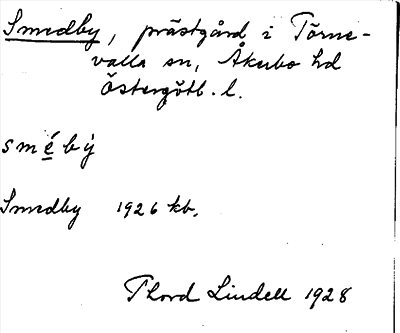 Smedby, prästgård i Törne-
valla sn, Åkerbo hd
Östergötl. l.
smé̱bẏ
Smedby 1926 kb.
Thord Lindell 1928